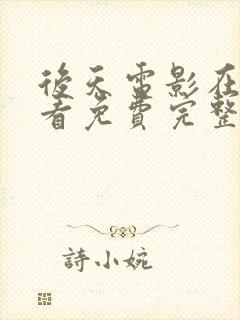 後天電影在
看免費完整
詩小婉